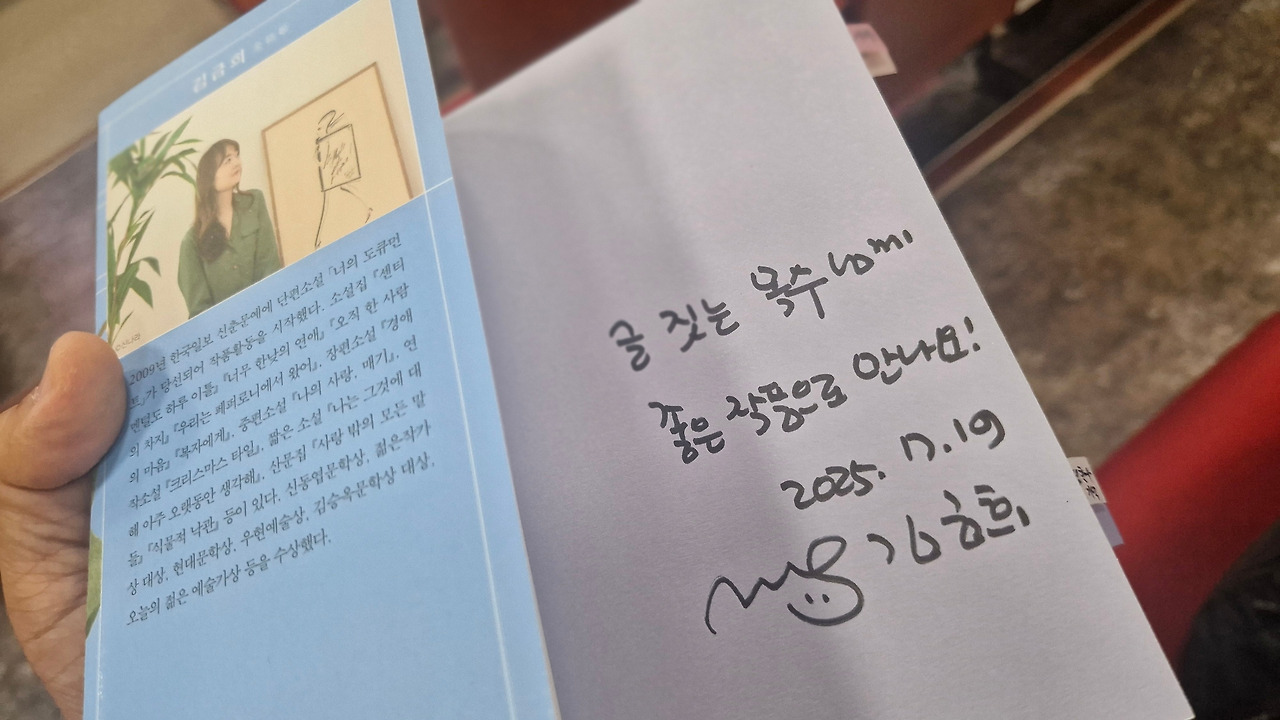 김금희 金錦姬
2009년 한국일보 신춘문예에 단편소설 「너의 도큐먼
트」가 당선되어 작품활동을 시작했다. 소설집 『센티
멘털도 하루 이틀』 『너무 한낮의 연애』 『오직 한 사람
의 차지』 『우리는 페퍼로니에서 왔어』, 장편소설 『경애
의 마음』 『복자에게』, 중편소설 『나의 사랑, 매기』, 연
작소설 『크리스마스 타일』, 짧은 소설 『나는 그것에 대
해 아주 오랫동안 생각해』, 산문집 『사랑 밖의 모든 말
들』 『식물적 낙관』 등이 있다. 신동엽문학상, 젊은작가
상 대상, 현대문학상, 우현예술상, 김승옥문학상 대상,
오늘의 젊은 예술가상 등을 수상했다.
글 짓는 목수님께
좋은 작품으로 만나요!
2025. 17. 19
김금희